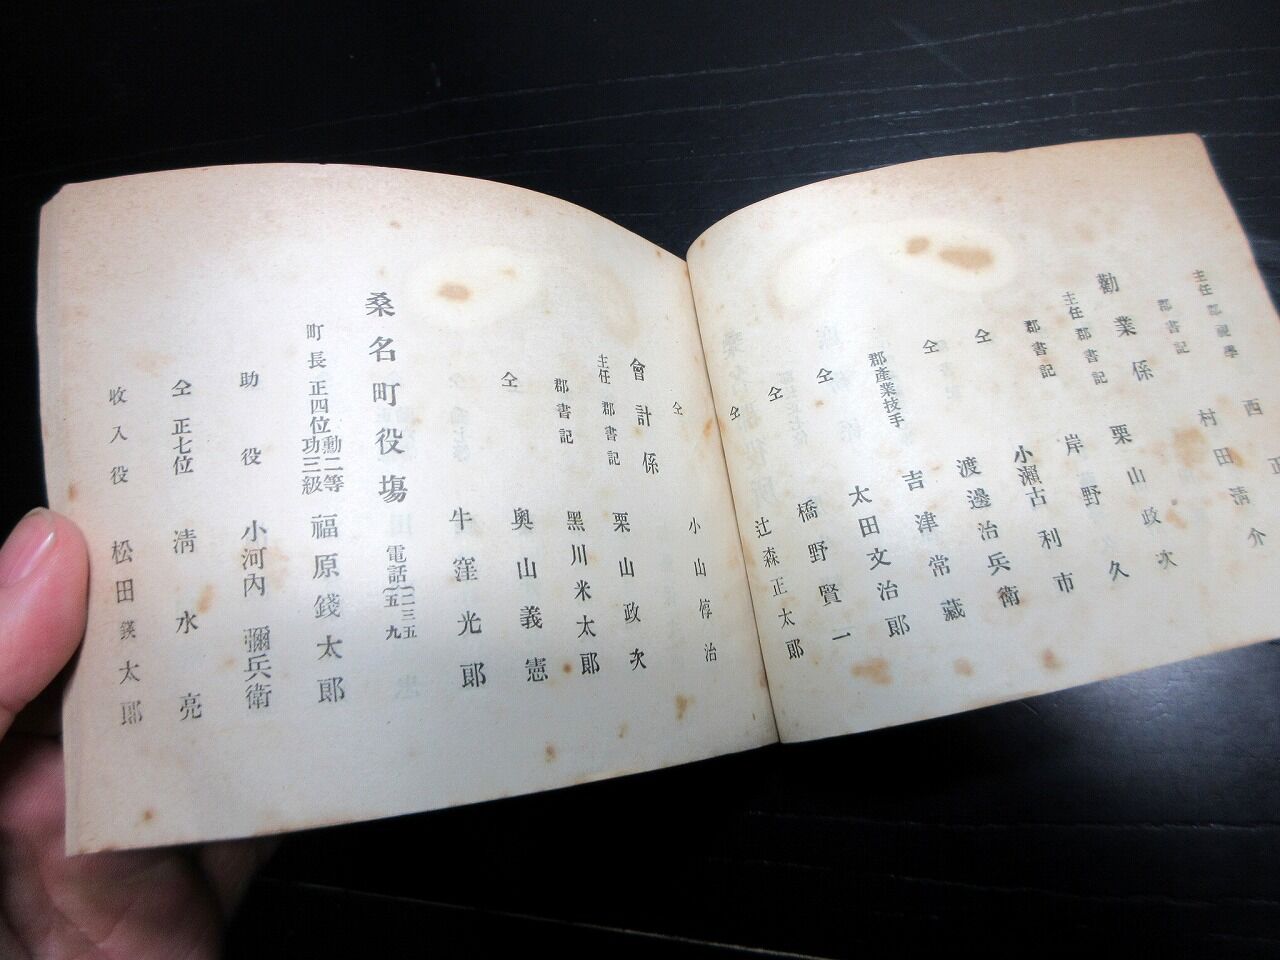 主任 郡視學 西 正
郡書記 村田清介
勸業係
主任 郡書記 栗山政次
郡書記 岸野久
仝 小瀬古利市
仝 渡邊治兵衛
郡產業技手 吉津常藏
仝 太田文治郎
仝 橋野賢一
仝 辻森正太郎
仝 小山惇治
會計係
主任 郡書記 栗山政次
郡書記 黑川米太郎
仝 奥山義憲
牛窪光郎
桑名町役塲 電話(二三五 五九
町長 正四位勳二等功三級 福原錢太郎
助役 小河內彌兵衛
仝 正七位 淸水亮
收入役 松田鍈太郎